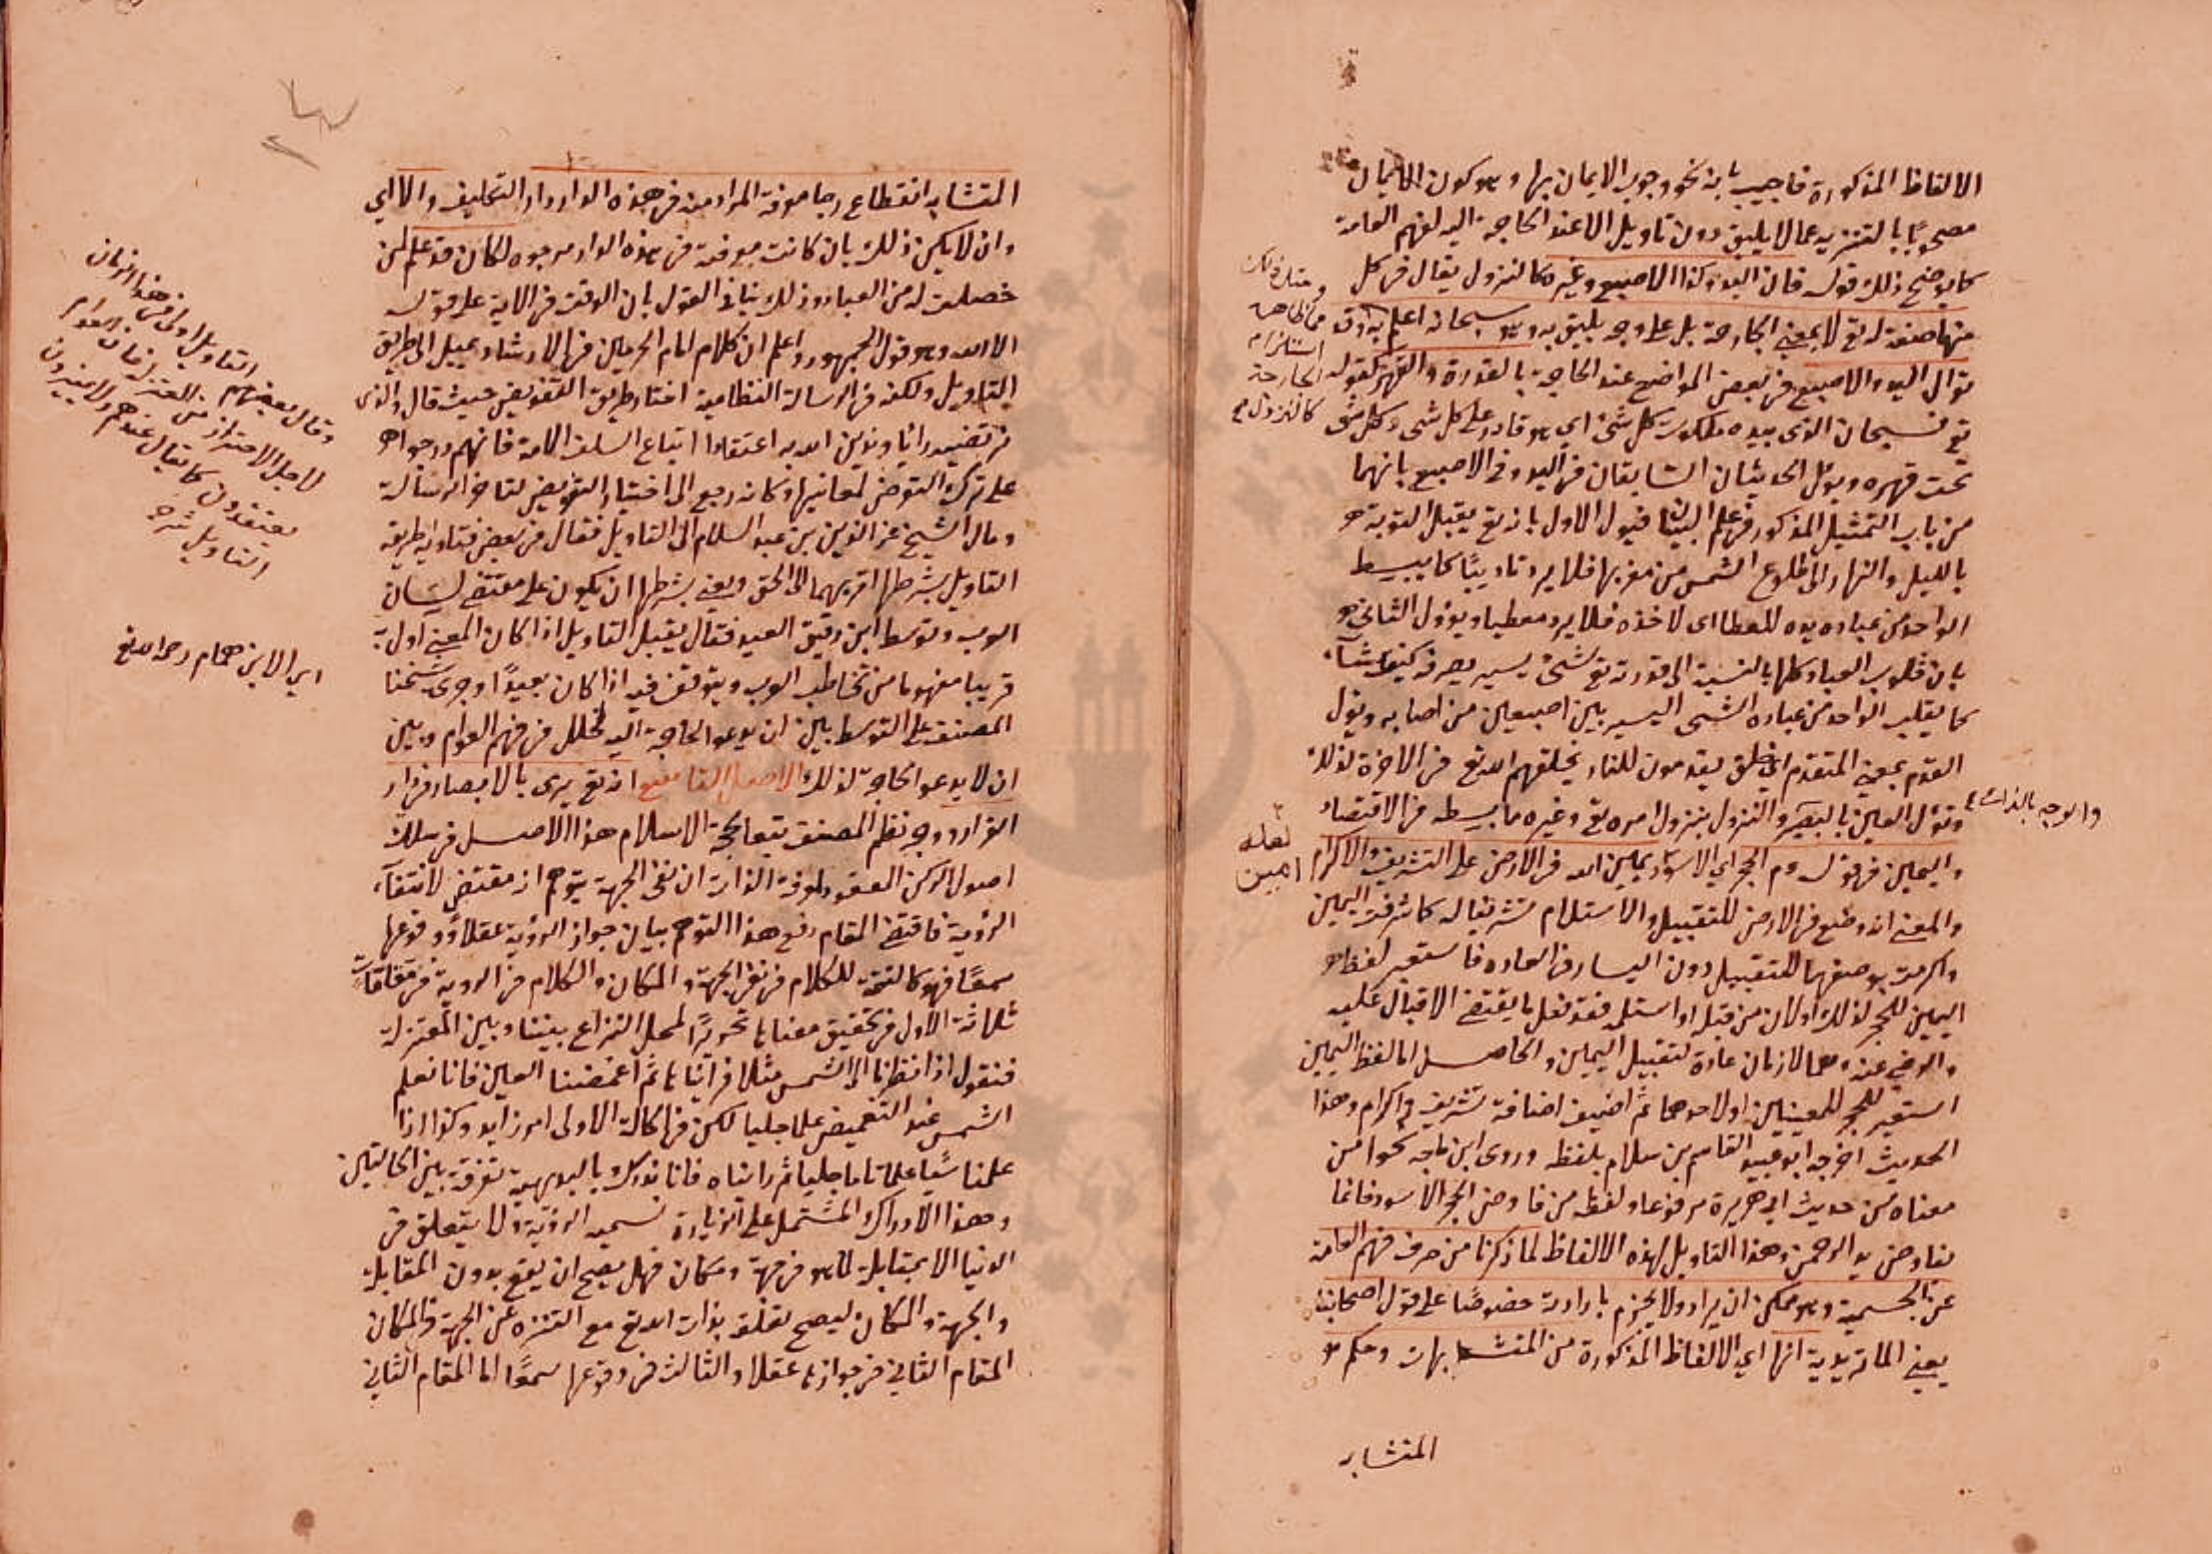 الالفاظ المذكورة فاجيب بانه نحو وجوب الايمان بها وهو كون الايمان
مصحوبًا بالتنزيه عما لا يليق دون تاويل الا عند الحاجة اليه لفهم العامة
كما يوضح ذلك قوله فان اليد وكذا الاصبع وغيره كالنزول يقال في كل
منها صفة له تع لا بمعنى الجارحة بل على وجه يليق به وهو سبحانه اعلم به وقد
تؤال اليد والاصبع في بعض المواضع عند الحاجة بالقدرة والقهر كقوله
تع فسبحان الذى بيده ملكوت كل شئ اي هو قادر على كل شى وكل شئ
تحت قهره ويؤل الحديثان السابقان في اليد وفي الاصبع بانهما
من باب التمثيل المذكور في علم البيان فيؤل الاول بانه تع يقبل التوبة
بالليل والنهار الى طلوع الشمس من مغربها فلا يرد تاديبًا كما يبسط
الواحد من عباده يده للعطا اى لاخذه فلا يرد معطيا ويؤول الثاني
بان قلوب العباد كلها بالنسبة الى قدرته تع شئ يسير يصرفه كيف شآء
كما يقلب الواحد من عباده الشى اليسير بين اصبعين من اصابعه ويؤل
القدم بمعنى المتقدم اي خلق يقدمون للنار يخلقهم الله تع في الاخرة لذلك
وتؤل العين بالبصر والنزول بنزول امره تع وغيره ما بسطه في الاقتصاد
واليمين في قوله عم الحجر اي الاسود يمين الله في الارض على التشريف والاكرام
والمعنى انه وضع في الارض للتقبيل والاستلام تشريفا له كما شرفت اليمين
واكرمت بوضعها للتقبيل دون اليسار في العادة فاستعير لفظ
اليمين للحجر لذلك اولان من قبله او استلمه فقد فعل ما يقتضي الاقبال عليه
والرضى عنه وهما لازمان عادة لتقبيل اليمين والحاصل ان لفظ اليمين
استعير للحجر للمعنيين اولاحدهما ثم اضيف اضافة تشريف واكرام وهذا
الحديث اخرجه ابو عبيد القاسم بن سلام بلفظه وروى ابن ماجه نحوا من
معناه من حديث ابي هريرة مرفوعا ولفظه من فاوض الحجر الاسود فانما
يفاوض يد الرحمن وهذا التاويل لهذه الالفاظ لما ذكرنا من صرف فهم العامة
عن الجسمية وهو ممكن ان يراد ولا يجزم بارادته خصوصًا على قول اصحابنا
يعني الماتريدية انها اي الالفاظ المذكورة من المتشابهات وحكم
المتشابه
كالنزول
والوجه بالذات
لعله
امين
المتشابه انقطاع رجا معرفة المراد منه في هذه الدار دار التكليف والا اي
وان لا يكن ذلك بان كانت معرفته في هذه الدار مرجوه لكان قد علم لمن
حصلت له من العباد وذلك ينافي القول بان الوقف في الاية على قوله
الا الله وهو قول الجمهور واعلم ان كلام امام الحرمين في الارشاد يميل الى طريق
التاويل ولكنه في الرسالة النظامية اختار طريق التفويض حيث قال والذى
نرتضيه رايا وندين الله به اعتقادا اتباع السلف الامة فانهم درجوا
على ترك التعرض لمعانيها وكانه رجع الى اختيار التفويض لتاخر الرسالة
ومال الشيخ عز الدين بن عبد السلام الى التاويل فقال في بعض فتاويه طريقة
التاويل بشرطها اقربهما الى الحق ويعني بشرطها ان يكون على مقتضى لسان
العرب وتوسط ابن دقيق العيد فقال يقبل التاويل اذا كان المعنى اول به
قريبا مفهوما من تخاطب العرب ويتوقف فيه اذا كان بعيدًا وجرى شيخنا
المصنف على التوسط بين ان يدعو الحاجة اليه لخلل في فهم العوام وبين
ان لا يدعو الحاجة لذلك الاصل التاسع انه تع يرى بالابصار في دار
القرار ووجه نظم المصنف تبعا لحجة الاسلام هذا الاصل في سلك
اصول الركن المعقود لمعرفة الذات ان نفى الجهة يتوهم انه مقتضى لانتفآء
الرؤية فاقتضى المقام دفع هذا التوهم ببيان جواز الرؤية عقلا ووقوعها
سمعًا فهو كالتتمة للكلام في نفي الجهة والمكان والكلام في الروية في مقامات
ثلاثة الاول في تحقيق معناها تحريرًا لمحل النزاع بيننا وبين المعتزلة
فنقول اذا نظرنا الى الشمس مثلا فرايناها ثم اغمضنا العين فانا نعلم
الشمس عند التغميض علما جليا لكن في الحالة الاولى امر زايد وكذا اذا
علمنا شيا علما تاما جليا ثم رايناه فانا ندرك بالبديهة تفرقة بين الحالتين
وهذا الادراك المشتمل على الزيادة نسميه الرؤية ولا يتعلق في
الدنيا الا بمقابلة لما هو في جهة ومكان فهل يصح ان يقع بدون المقابلة
والجهة والمكان ليصح تعلقه بذات الله تع مع التنزه عن الجهة والمكان
المقام الثاني في جوازها عقلا والثالث في وقوعها سمعًا اما المقام الثاني
وقال بعضهم التاويل اولى في هذا الزمان
يعتقدون كما يقال عندهم
التاويل شرح
اي الابن همام رحمه الله تع